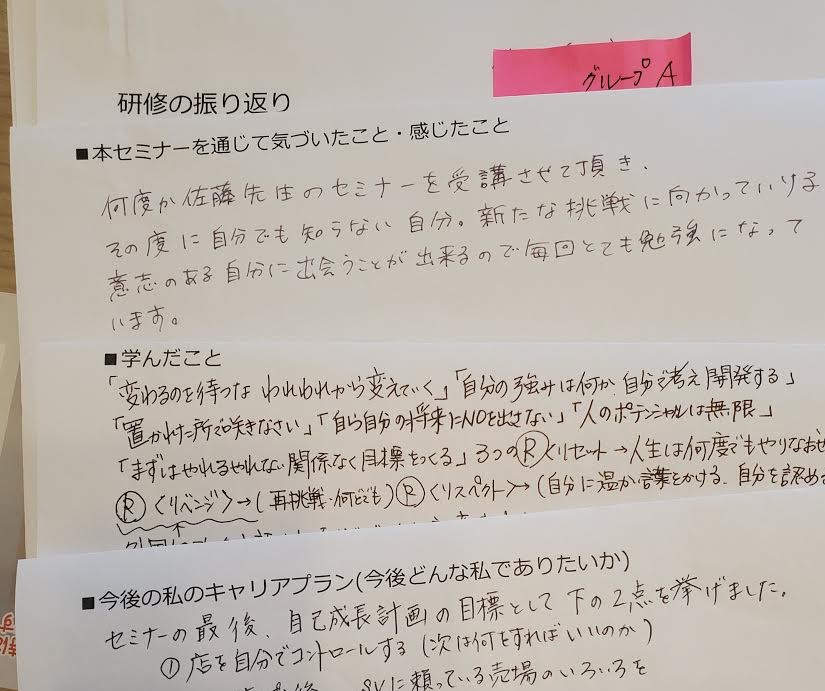 グループA
研修の振り返り
■本セミナーを通じて気づいたこと・感じたこと
何度か佐藤先生のセミナーを受講させて頂き、
その度に自分でも知らない自分。新たな挑戦に向かっていける
意志のある自分に出会うことが出来るので毎回とても勉強になって
います。
■学んだこと
「変わるのを待つな われわれから変えていく」「自分の強みは何か、自分で考え開発する」
「置かれた所で咲きなさい」「自ら自分の将来にNOを出さない」「人のポテンシャルは無限」
「まずはやれるやれない関係なく目標をつくる」3つのⓇ〈リセット→人生は何度でもやりなおせ
Ⓡ〈リベンジ〉→(再挑戦・何どでも)Ⓡ〈リスペクト〉→(自分に温か言葉をかける、自分を認め
■今後の私のキャリアプラン(今後どんな私でありたいか)
セミナーの最後、自己成長計画の目標として下の2点を挙げました。
①店を自分でコントロールする(次は何をすればいいのか)
SVに頼っている売場のいろいろを